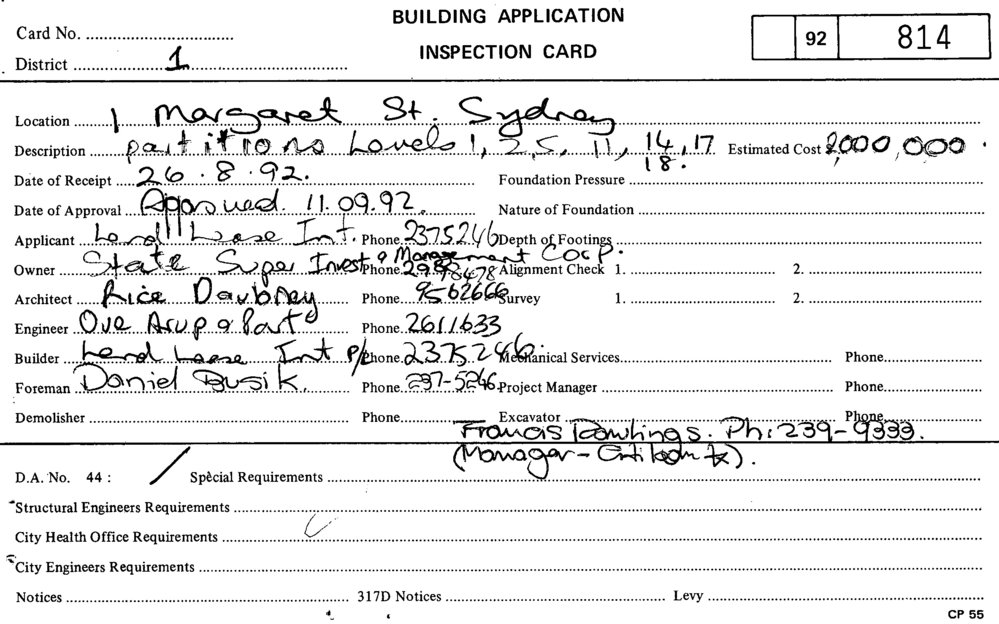 BUILDING APPLICATION
INSPECTION CARD
Card No.
92 814
District 1
Location 1 Margaret St. Sydney
Description partitions Levels 1, 2, 5, 11, 14, 17 Estimated Cost 2,000,000.
18.
Date of Receipt 26.8.92. Foundation Pressure
Date of Approval Approved. 11.09.92. Nature of Foundation
Applicant Lend Lease Int. Phone 2375246 Depth of Footings
Owner State Super Invest & Management Corp. Phone Alignment Check 1. 2.
Architect Rice Daubney Phone 9562666 Survey 1. 2.
Engineer Ove Arup & Part Phone 2611633
Builder Lend Lease Int P/L Phone 2375246. Mechanical Services Phone
Foreman Daniel Busik. Phone 237-5246 Project Manager Phone
Demolisher Phone Excavator Phone
Francis Rawlings. Ph: 239-9333.
(Manager-
D.A. No. 44 : / Special Requirements
Structural Engineers Requirements
City Health Office Requirements
City Engineers Requirements
Notices 317D Notices Levy
CP 55